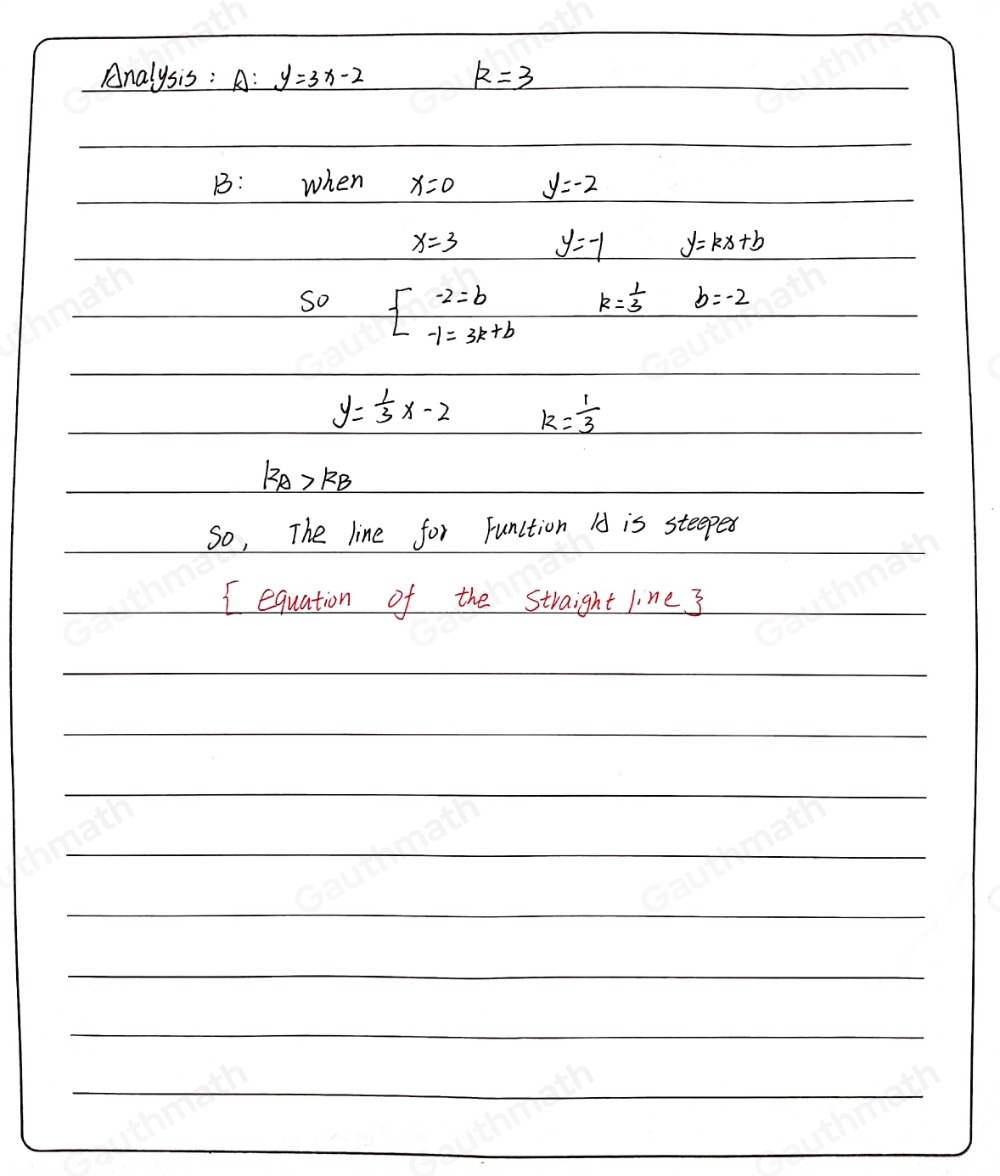 Analysis: A: y=3x-2 k=3
B: when x=0 y=-2
x=3 y=-1 y=kx+b
So { -2=b k=1/3 b=-2
-1=3k+b
y=1/3x-2 k=1/3
kA>kB
So, The line for Function A is steeper
{ equation of the straight line }
Gauthmath